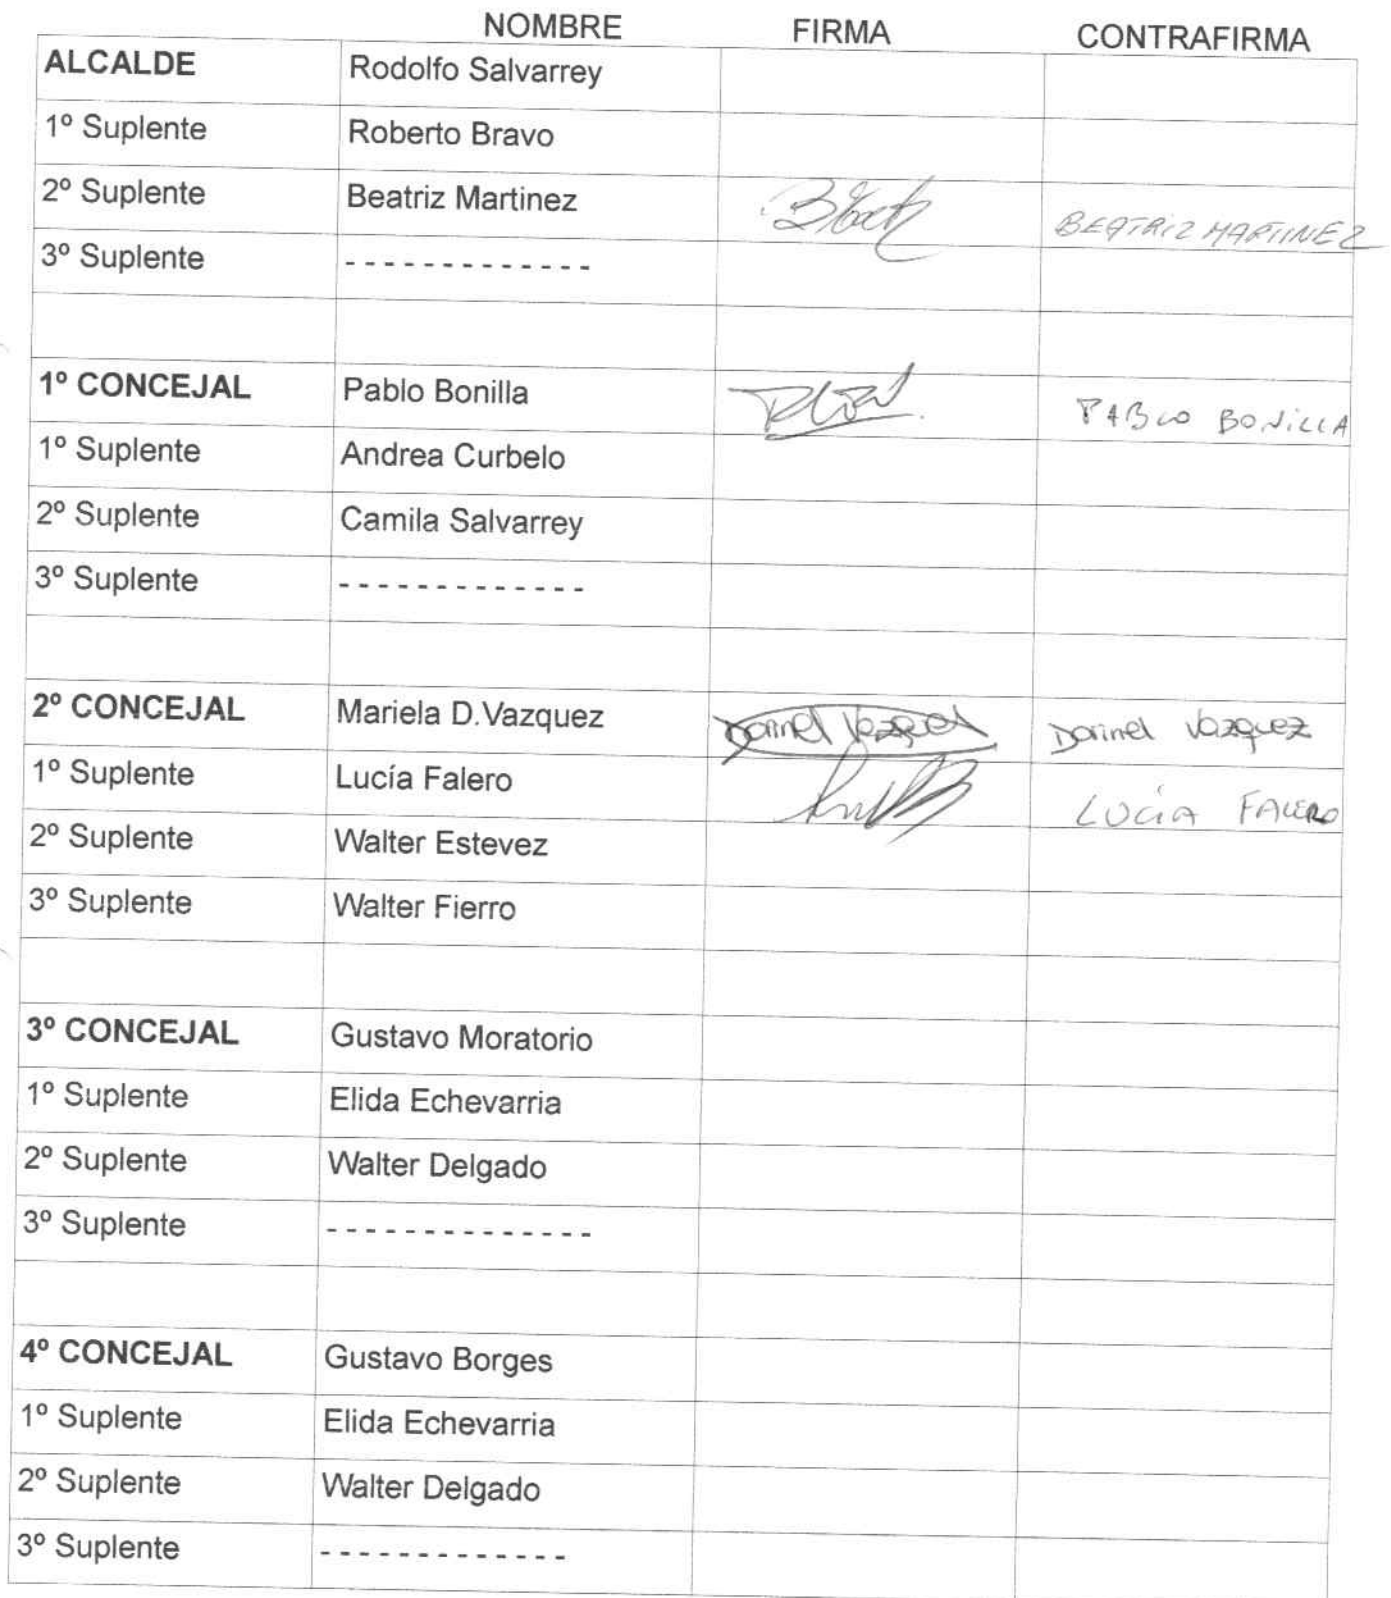 NOMBRE FIRMA CONTRAFIRMA
ALCALDE Rodolfo Salvarrey
1º Suplente Roberto Bravo
2º Suplente Beatriz Martinez BEATRIZ MARTINEZ
3º Suplente - - - - - - - - - - - - -
1º CONCEJAL Pablo Bonilla PABLO BONILLA
1º Suplente Andrea Curbelo
2º Suplente Camila Salvarrey
3º Suplente - - - - - - - - - - - - -
2º CONCEJAL Mariela D.Vazquez Darinel Vazquez Darinel Vazquez
1º Suplente Lucía Falero LUCÍA FALERO
2º Suplente Walter Estevez
3º Suplente Walter Fierro
3º CONCEJAL Gustavo Moratorio
1º Suplente Elida Echevarria
2º Suplente Walter Delgado
3º Suplente - - - - - - - - - - - - - -
4º CONCEJAL Gustavo Borges
1º Suplente Elida Echevarria
2º Suplente Walter Delgado
3º Suplente - - - - - - - - - - - - -